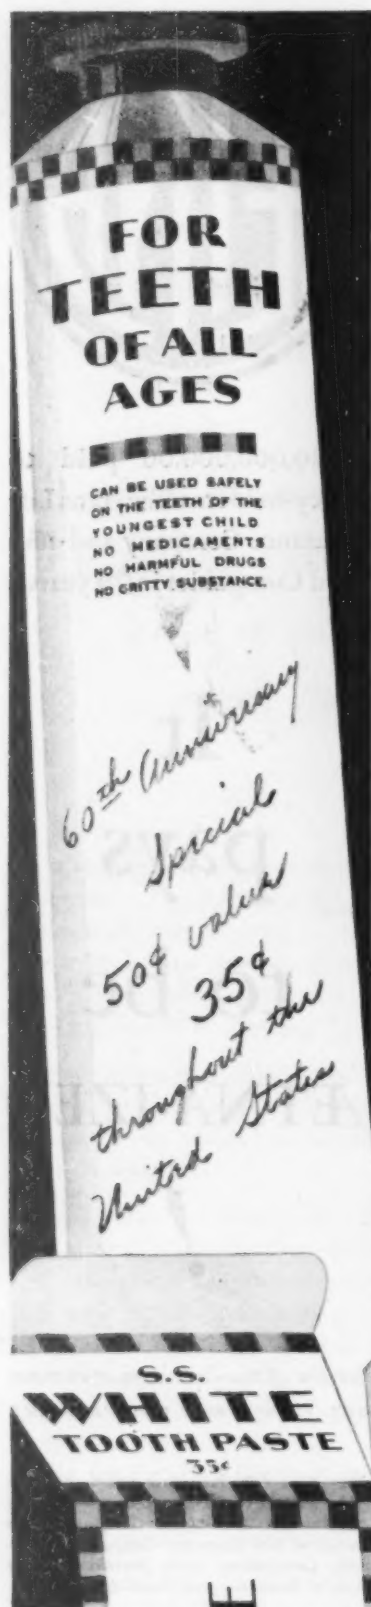 FOR
TEETH
OF ALL
AGES
CAN BE USED SAFELY
ON THE TEETH OF THE
YOUNGEST CHILD
NO MEDICAMENTS
NO HARMFUL DRUGS
NO GRITTY SUBSTANCE.
60th Anniversary
Special
50¢ value
35¢
throughout the
United States
S.S.
WHITE
TOOTH PASTE
35¢
E